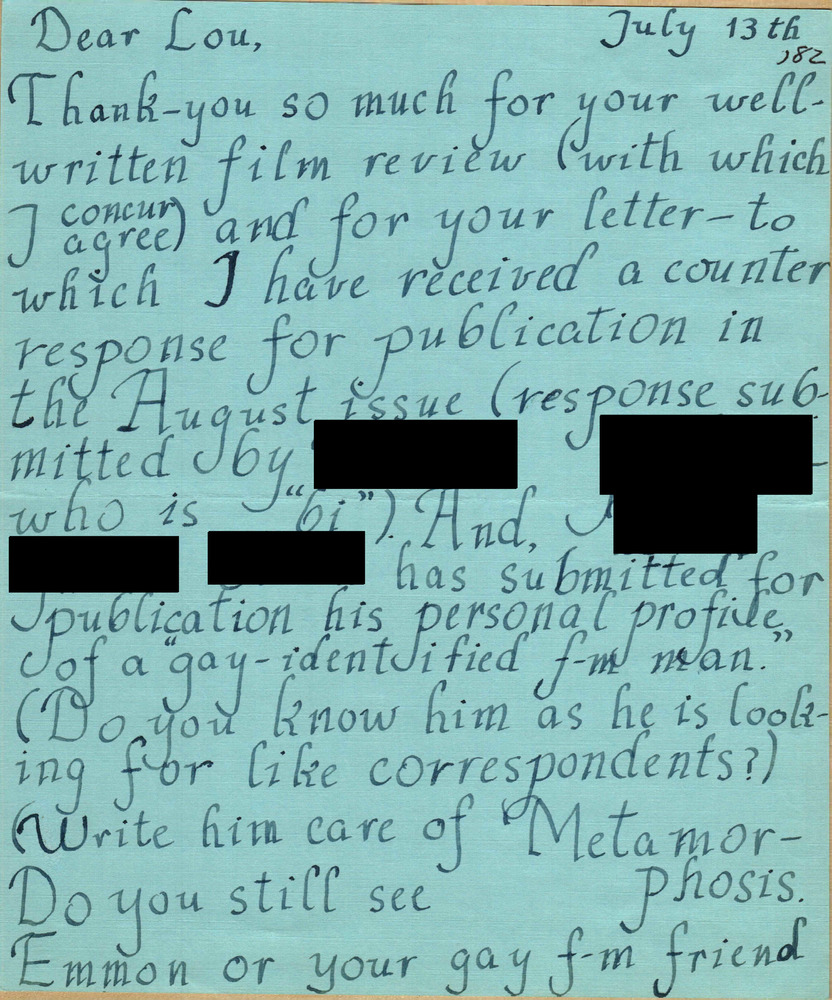 Dear Lou, July 13th
'82
Thank-you so much for your well-
written film review (with which
I concur
agree) and for your letter – to
which I have received a counter
response for publication in
the August issue (response sub-
mitted by
who is "bi"). And,
has submitted for
publication his personal profile
of a "gay-identified f-m man."
(Do you know him as he is look-
ing for like correspondents?)
(Write him care of Metamor-
phosis.
Do you still see
Emmon or your gay f-m friend